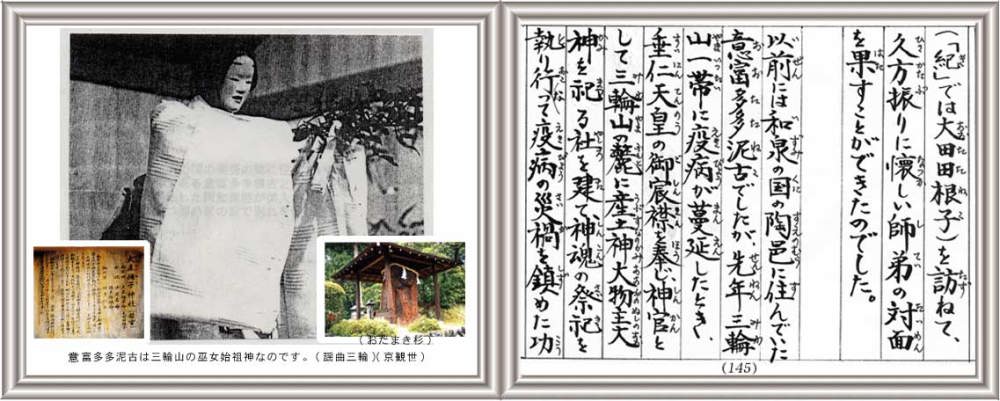 （おだまき杉）
意富多多泥古は三輪山の巫女始祖神なのです。（謡曲三輪）（京観世）
（「紀」では大田田根子）を訪ねて、
久方振りに懐しい師弟の対面
を果すことができたのでした。
以前には和泉の国の陶邑に住んでいた
意富多多泥古でしたが、先年三輪
山一帯に疫病が蔓延したとき、
垂仁天皇の御宸襟を奉じ神官と
して三輪山の麓に産土神大物主大
神を祀る社を建て、神魂の祭祀を
執り行って疫病の災禍を鎮めた功
(145)